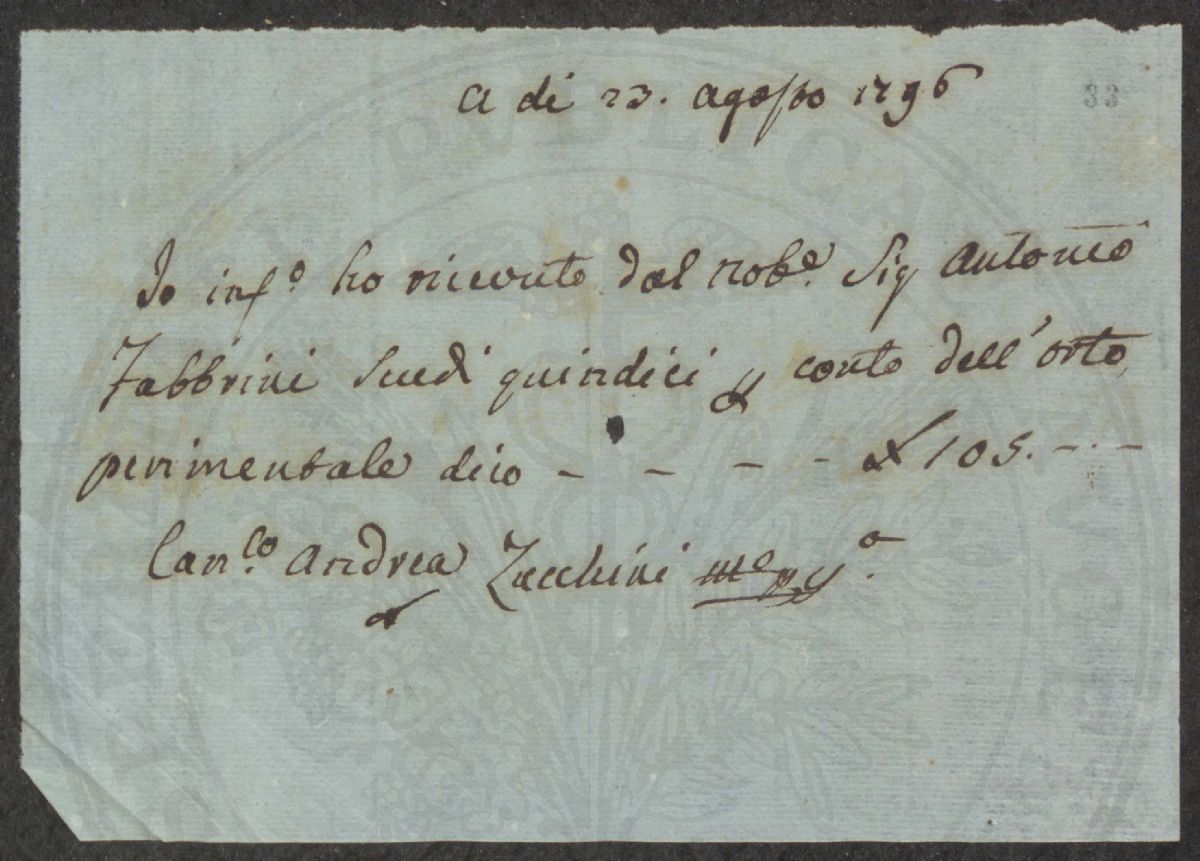 A di 23. agosto 1796
33
Io inf.o ho riceuto dal Nob.e Sig Antonio
Fabbrini Scudi quindici conto dell'orto
perimentale dico - - - - 105. - . -
Can.co Andrea Zacchini